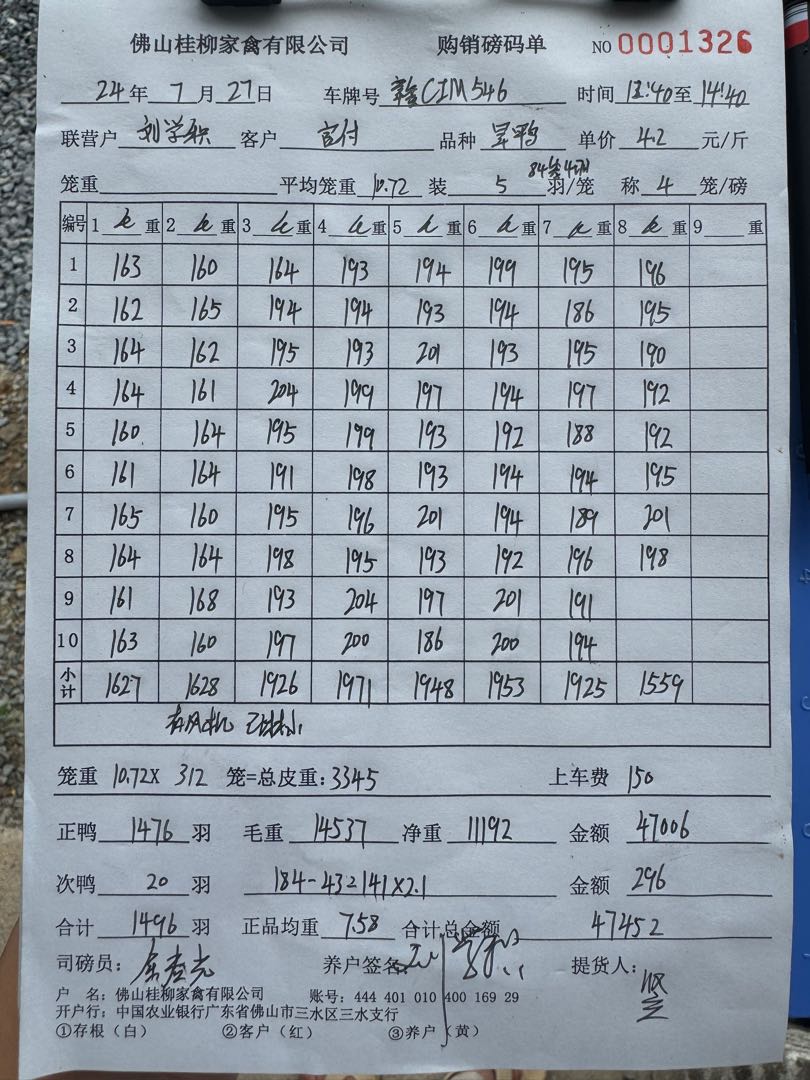 佛山桂柳家禽有限公司 购销磅码单 NO 0001326
24年7月27日 车牌号 CIM546 时间 12:40至14:40
联营户 刘学 客户 品种 鸭 单价 4.2 元/斤
84笼4羽
笼重 平均笼重 10.72 装 5 羽/笼 称 4 笼/磅
编号 1 重 2 重 3 重 4 重 5 重 6 重 7 重 8 重 9 重
1 163 160 164 193 194 199 195 196
2 162 165 194 194 193 194 186 195
3 164 162 195 193 201 193 195 190
4 164 161 204 199 197 194 197 192
5 160 164 195 199 193 192 188 192
6 161 164 191 198 193 194 194 195
7 165 160 195 196 201 194 189 201
8 164 164 198 195 193 192 196 198
9 161 168 193 204 197 201 191
10 163 160 197 200 186 200 194
小计 1627 1628 1926 1971 1948 1953 1925 1559
有风机
笼重 10.72X 312 笼=总皮重:3345 上车费 150
正鸭 1476 羽 毛重 14537 净重 11192 金额 47006
次鸭 20 羽 184-43 141X2.1 金额 296
合计 1496 羽 正品均重 7.58 合计总金额 47452
司磅员: 养户签名 提货人:
户 名: 佛山桂柳家禽有限公司 账号: 444 401 010 400 169 29
开户行: 中国农业银行广东省佛山市三水区三水支行
①存根(白) ②客户(红) ③养户(黄)